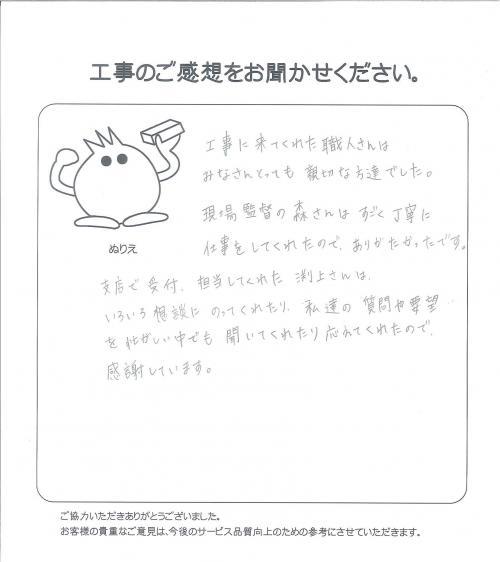 工事のご感想をお聞かせください。
工事に来てくれた職人さんは
みなさんとっても 親切な方達でした。
現場監督の森さんは すごく丁寧に
仕事をしてくれたので、ありがたかったです。
ぬりえ
支店で受付、担当してくれた 渕上さんは、
いろいろ相談に のってくれたり、私達の 質問や要望
を忙がしい中でも 聞いてくれたり応えてくれたので、
感謝しています。
ご協力いただきありがとうございました。
お客様の貴重なご意見は、今後のサービス品質向上のための参考にさせていただきます。